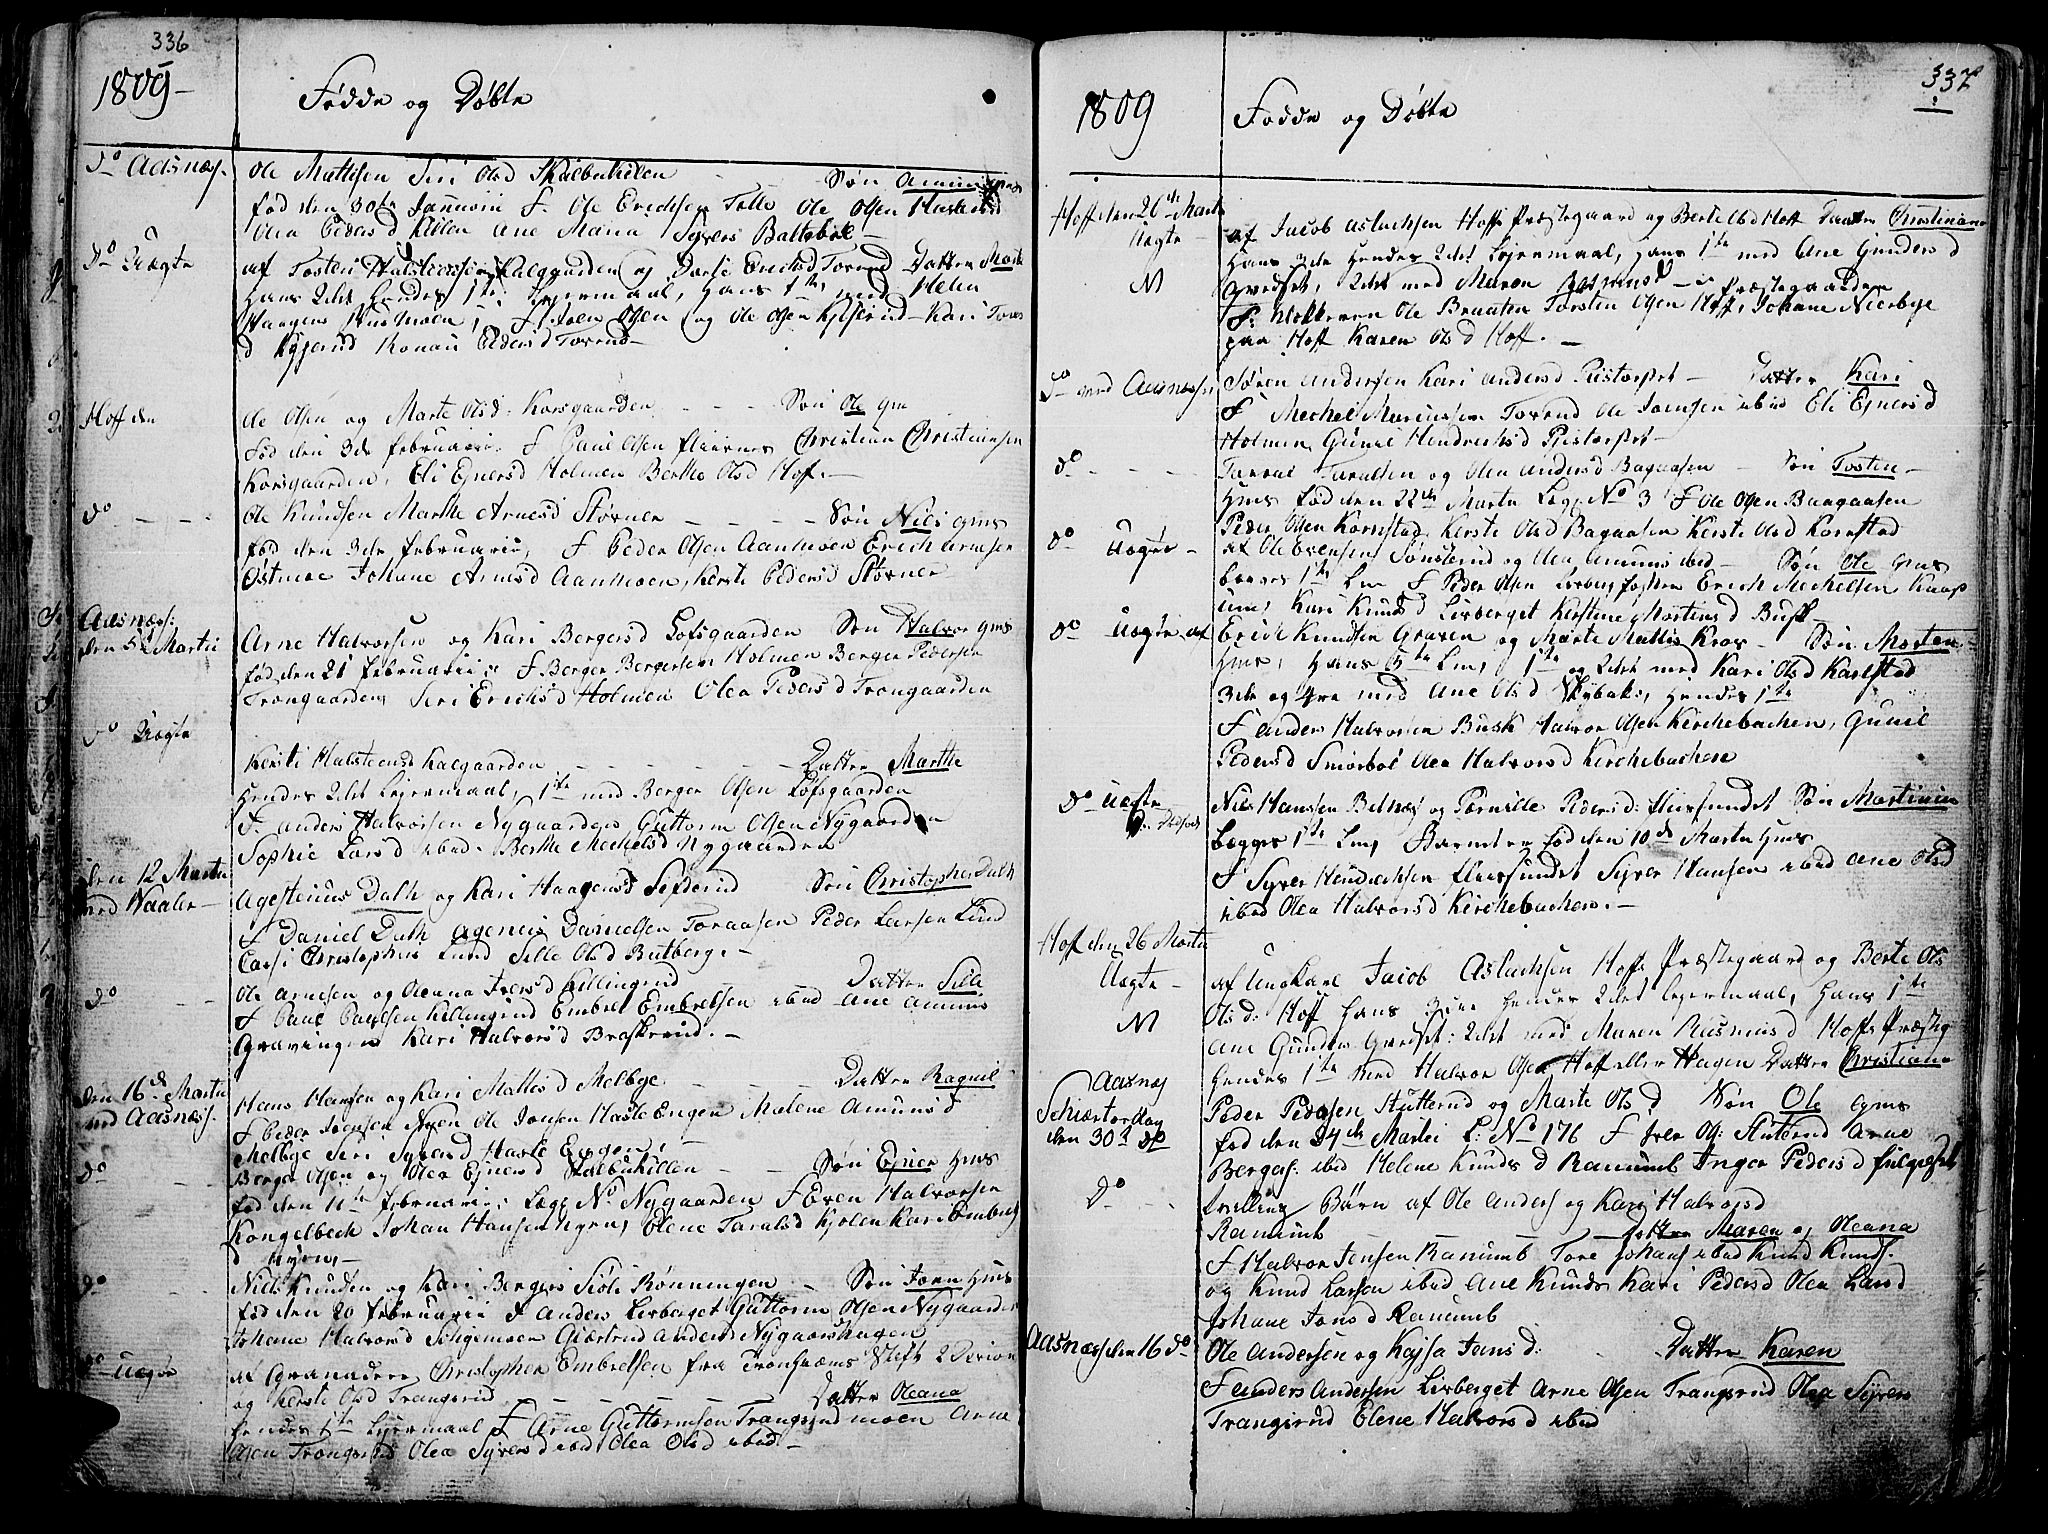 336
1809 –
Fødde og Døbte
do Aasnæs.
Ole Mattisen Siri Olsd Skulbuhilen Søn Amun
fød den 30te Januarii F. Ole Erichsen Ole Olsen
Olea Pedersd Killen Ane Maria Syvers Baltebøl
do Uægte
af Tosten Halsteensen Kalgaarden og Dorte Erichsd Torend Datter Marte
Hans 2det Hendes 1te Lejermaal, Hans 1te med Helen
Haagens F. Joen Olsen og Ole Olsen Kjiserud – Kari
d Kyserud Ronau Pedersd Torend
Hoff den
Ole Olsen og Marte Olsd: Korsgaarden – – – Søn Ole gm
fød den 3de februarii. F Paul Olsen Christian Christiansen
Korsgaarden, Eli Ejnersd Holmen Berthe Olsd Hoff. –
do – – –
Ole Knudsen Marthe Arnesd Størner – – – – Søn Niels gms
fød den 3de februarii, F Peder Olsen Aanmoen Erich Arnesen
Østmoe Johane Arnesd Aanmoen, Kersti Pedersd Størner
Aasnæs:
den 5te Martii
Arne Halvorsen og Kari Bergersd Lofsgaarden Søn Halvor gms
fød den 21 februarii: F. Berger Bergersen Holmen Berger Pedersen
Trongaarden Seri Erichsd Holmen Olea Pedersd Trongaarden
do Uægte
Kersti Halsteensd Kalgaarden – – – – – Datter Marthe
Hendes 2det Lejermaal, 1te med Berger Olsen Lofsgaarden
F. Anders Halvorsen Nygaarden Guttorm Olsen Nygaarden
Sophie Larsd ibid. Berthe Mechelsd Nygaarden
den 12 Martii
ved Waaler –
Agestinus Dalh og Kari Haagensd Sefderud Søn Christopher Dalh
F Daniel Dalh Daniels​en Toraasen Peder Larsen Lund
Christophers Lund Sille Olsd Butberg. –
do – –
Ole Arnesen og Oleana Iversd Killingrud Datter Sille
F Paul Paulsen Killingrud Embret Embretsen ibid Ane Amuns
Gravingen Kari Halvorsd Braskerud. –
den 16de Martii
ved Aasnæs.
Hans Hansen og Kari Mattisd Melbye – – – Datter Raguil
F Peder Iversen Nyen Ole Jonsen Hasle Engen Malene Amunsd
Melbye Seri Syversd Hasle Engen,
do – –
Berger Olsen og Olea Ejnersd Skulbuhillen – – Søn Ejner Hms
fød den 11te februarii: Lægs No Nygaarden F Even Halvorsen
Kongelbech Johan Hansen Nyen, Elene Taralsd Kjolen Kari Embrets
d Nyen, –
do – –
Niels Knudsen og Kari Bergers Siøli Rønningen – Søn Joen Hms
fød den 20 februarii F Anders Lieberget Guttorm Olsen Nygaarden
Johane Halvorsd Seligemoen Giertrud Andersd Nygaarshagen
do Uægte
af Granadeer Christopher Embretsen fra Tronhiems Stift 2
og Kersti Olsd Trangsrud – – – – – Datter Oleana
Hendes 1te Lejermaal F Arne Guttormsen Trangsrudmoen Arne
Olsen Trangsrud Olea Syversd ibid Olea Olsd ibid –
337
1809
Fødde og Døbte
Hoff den 26de Martii
Uægte –
N
af Jacob Aslachsen Hoffs Præstegaard og Berte Olsd Hoff Datter Christiane
Hans 3die Hendes 2det Lejermaal, Hans 1te med Ane Gundersd
Qvedset, 2det med Maren Rasmusd – Præstegaarden
F: Klokkeren Ole Braaten Torsten Olsen Hoff, Johane Neerbye
paa Hoff Karen Olsd Hoff. –
do ved Aasnæs
Søren Andersen Kari Andersd Pistorpet – Datter Kari
F Mechel Marcusen Torend Ole Joensen ibid Eli Ejnersd
Holmen Gunil Hendrichsd Pistorpet –
do – – – –
Taral Taralsen og Olea Andersd Bagaasen – Søn Tosten –
Hms fød den 22de Martii Lægs No 3 F Ole Olsen Baagaasen
Peder Olsen Kornstad, Kersti Olsd Bagaasen Kersti Olsd Kornstad
do Uægte –
af Ole Evensen Sønsterud og Olea Amuns ibid – Søn Ole gms
begges 1te Lm F Peder Olsen Lieberg fostre Erich Mechelsen Knap
um, Kari Knudsd Lieberget Kirstine Mortensd Busk
do Uægte af
Erich Knudsen Graven og Marte Mattis Kros – Søn Morten
Hms, Hans 5te Lm, 1te og 2det med Kari Olsd Karlstad
3de og 4re med Ane Olsd Nybak, Hendes 1te
F Anders Halvorsen Busk Halvor Olsen Kirchebachen, Gunil
Pedersd Smørbøl Olea Halvorsd Kirchebachen
do Uægte
Niels Hansen Belnæs og Pernille Pedersd: Flisesundet Søn Martinin
begges 1te Lm, Barnet er fød den 10de Martii Hms
F Syver Hendrichsen Flisesundet Syver Hansen ibid Ane Olsd
ibid Olea Halvorsd Kirchebachen. –
Hoff den 26 Martii
Uægte –
N
af Ungkarl Jacob Aslachsen Hoffs Præstegaard og Berte Ols
Olsd: Hoff Hans 3die Hendes 2det Lejermaal, Hans 1te
Ane Gunders Qvedset: 2det med Maren Rasmusd Hoffs Præsteg
Hendes 1te med Halvor Olsen Hoff eller Hagen Datter Christiana
Aasnæs
Schiærtorsdag
den 30te do
Peder Pedersen Stutterud og Marte Olsd Søn Ole gms
fød den 24de Martii L: No 176 F Iver Ol: Stuterud Arne
Bergers. ibid Helene Knudsd Ranumb Inger Pedersd
do – – –
Tvilling Børn af Ole Anders og Kari Halvorsd
Ranumb – – – Døttre Maren og Oleana
F Halvor Jensen Ranumb Tore Johans ibid Knud Knuds.
og Knud Larsen ibid Ane Knuds Kari Pedersd Olea Larsd
Johane Jonsd Ranumb
Aasnæs den 16 do
Ole Andersen og Kajsa Jansd: – Datter Karen
F Anders Andersen Lieberget Arne Olsen Trangsrud Olea Syvers
Trangsrud Elene Halvorsd ibid